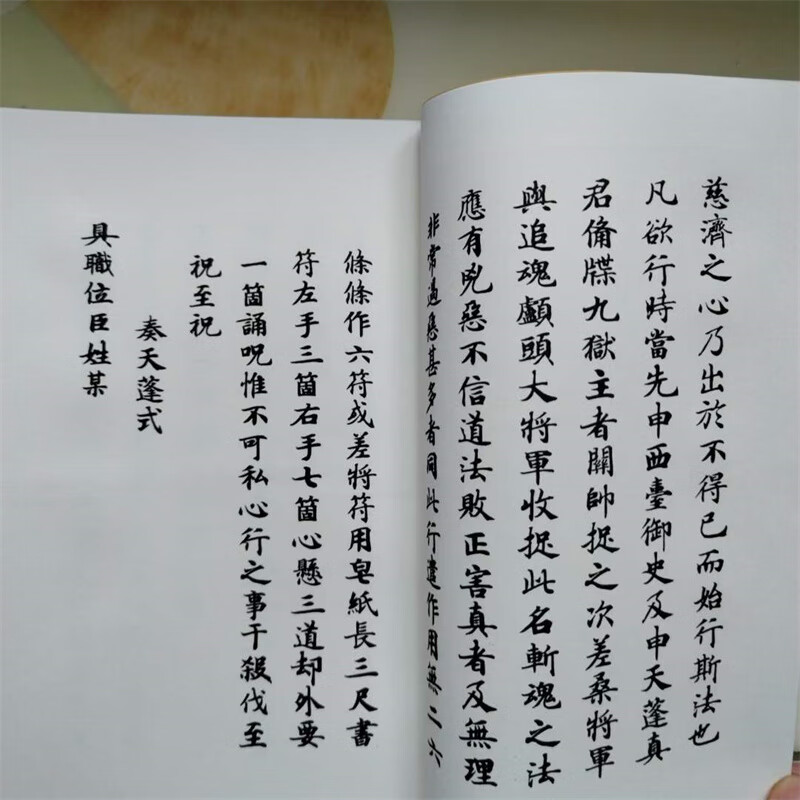 慈濟之心乃出於不得已而始行斯法也
凡欲行時當先申西臺御史及申天蓬真
君俻牒九獄主者關帥捉之次差桑將軍
與追魂顱頭大將軍收捉此名斬魂之法
應有兇惡不信道法敗正害真者及無理
非常過惡甚多者同此行遣作用無二六
條條作六符或差將符用皂紙長三尺書
符左手三箇右手七箇心懸三道却外要
一箇誦呪惟不可私心行之事干殺伐至
祝至祝
奏天蓬式
具職位臣姓某